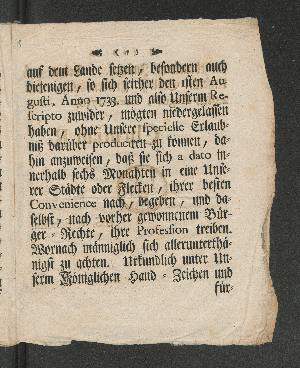 auf dem Lande setzen, besondern auch
diejenigen, so sich seither den 1sten Au-
gusti, Anno 1733. und also Unserm Re-
scripto zuwider, mögten niedergelassen
haben, ohne Unsere specielle Erlaub-
niß darüber produciren zu können, da-
hin anzuweisen, daß sie sich a dato in-
nerhalb sechs Monahten in eine Unse-
rer Städte oder Flecken, ihrer besten
Convenience nach, begeben, und da-
selbst, nach vorher gewonnenem Bür-
ger-Rechte, ihre Profession treiben.
Wornach männiglich sich allerunterthä-
nigst zu achten. Urkundlich unter Un-
serm Königlichen Hand-Zeichen und
für-